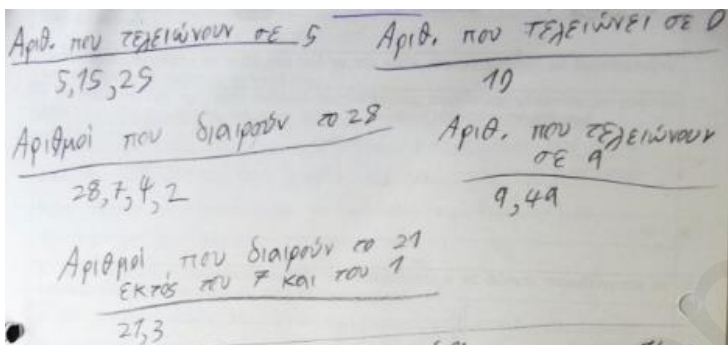 Αριθ. που τελειώνουν σε 5
5,15,25
Αριθ. που τελειώνει σε 0
10
Αριθμοί που διαιρούν το 28
28,7,4,2
Αριθ. που τελειώνουν
σε 9
9,49
Αριθμοί που διαιρούν το 21
εκτός του 7 και του 1
21,3